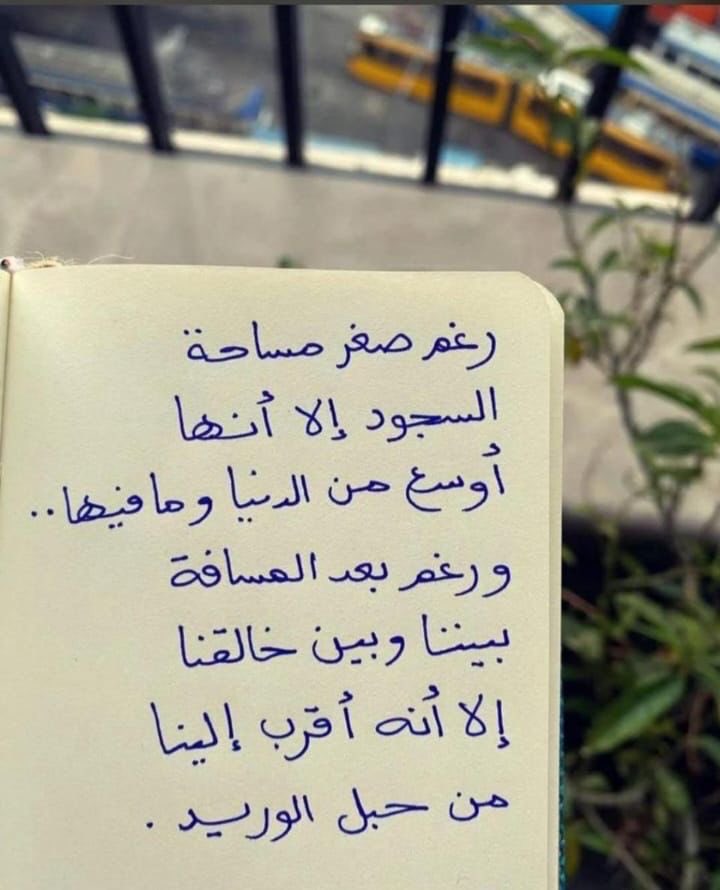 رغم صغر مساحة
السجود إلا أنها
أوسع من الدنيا وما فيها..
ورغم بعد المسافة
بيننا وبين خالقنا
إلا أنه أقرب إلينا
من حبل الوريد .